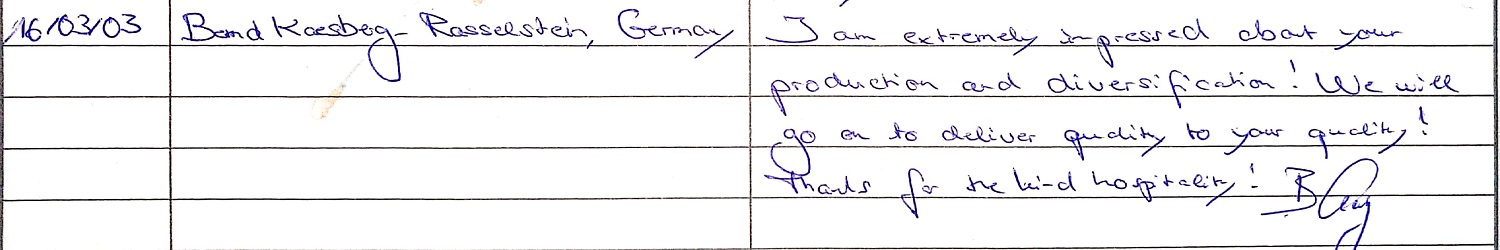 16/03/03 Bernd Kaesberg - Rasselstein, Germany I am extremely impressed about your
production and diversification! We will
go on to deliver quality to your quality!
Thanks for the kind hospitality!